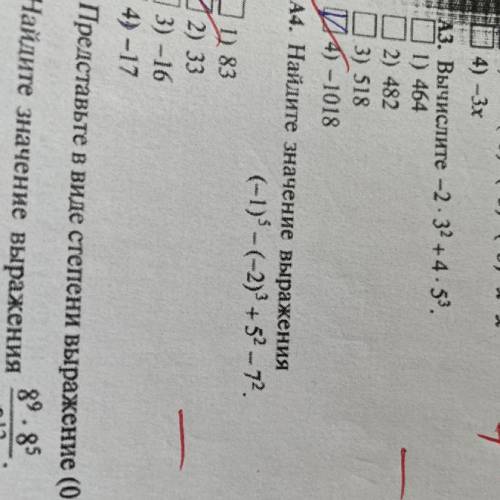 4) −3x
А3. Вычислите −2 · 3² + 4 · 5³.
1) 464
2) 482
3) 518
4) −1018
А4. Найдите значение выражения
(−1)⁵ − (−2)³ + 5² − 7².
1) 83
2) 33
3) −16
4) −17
Представьте в виде степени выражение (0
Найдите значение выражения 8⁹ · 8⁵